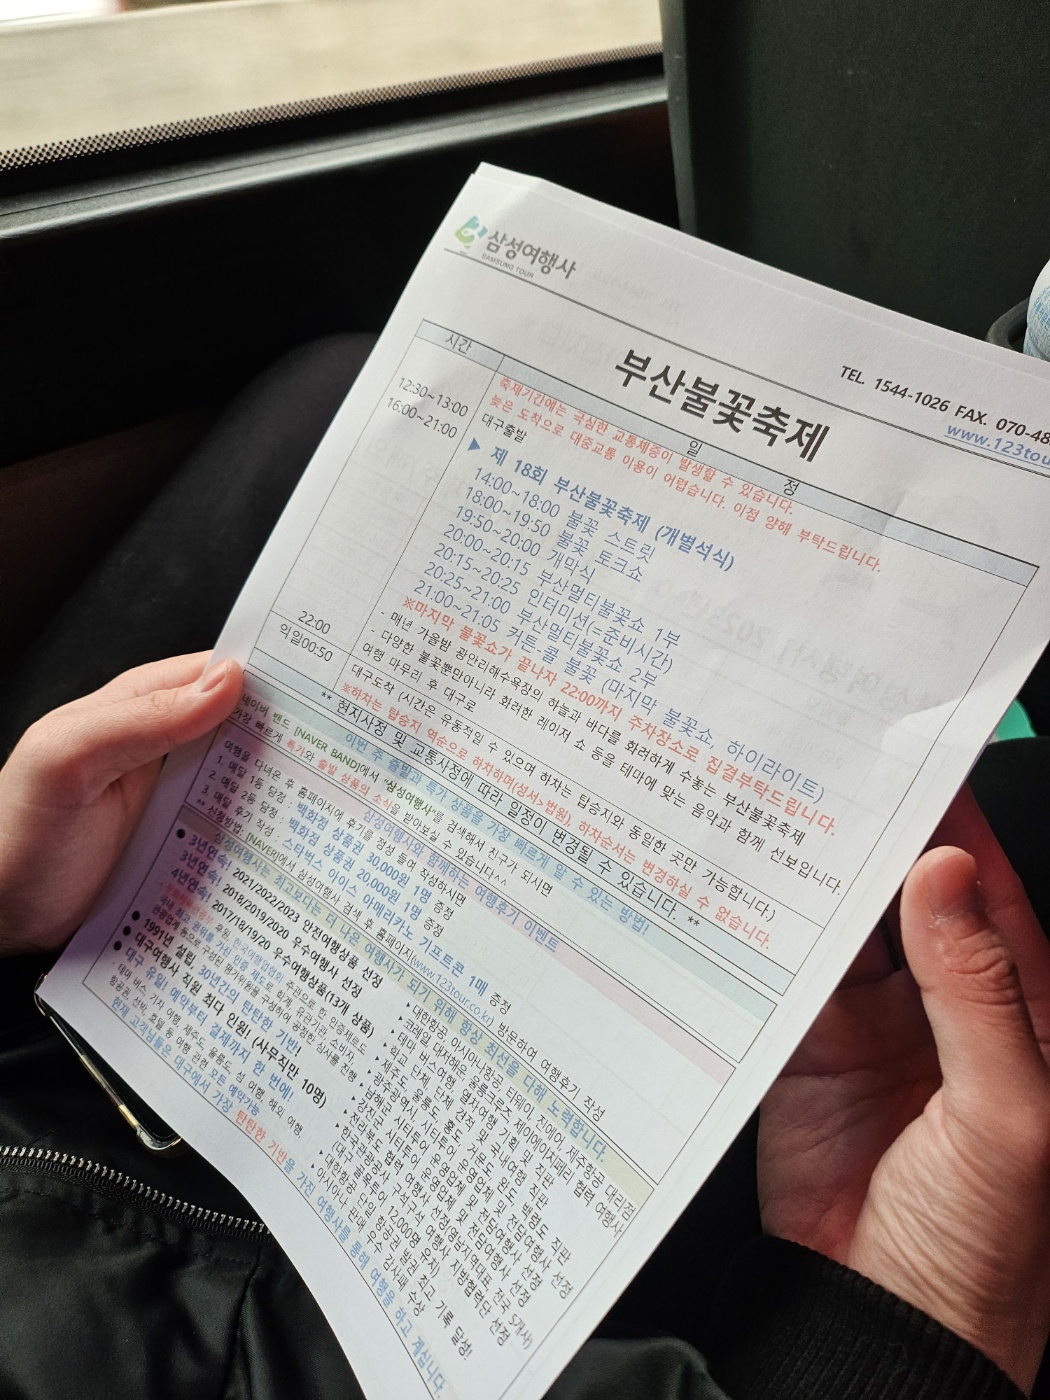 삼성여행사
SAMSUNG TOUR
TEL. 1544-1026 FAX. 070-48
www.123tou
부산불꽃축제
시간 일 정
축제기간에는 극심한 교통체증이 발생할 수 있습니다.
늦은 도착으로 대중교통 이용이 어렵습니다. 이점 양해 부탁드립니다.
12:30~13:00 대구출발
16:00~21:00 ▶ 제 18회 부산불꽃축제 (개별석식)
14:00~18:00 불꽃 스트릿
18:00~19:50 불꽃 토크쇼
19:50~20:00 개막식
20:00~20:15 부산멀티불꽃쇼 1부
20:15~20:25 인터미션(=준비시간)
20:25~21:00 부산멀티불꽃쇼 2부
21:00~21:05 커튼 콜 불꽃 (마지막 불꽃쇼, 하이라이트)
※마지막 불꽃쇼가 끝나자 22:00까지 주차장소로 집결부탁드립니다.
- 매년 가을밤 광안리해수욕장의 하늘과 바다를 화려하게 수놓는 부산불꽃축제
- 다양한 불꽃뿐만아니라 화려한 레이저 쇼 등을 테마에 맞는 음악과 함께 선보입니다.
22:00 여행 마무리 후 대구로
익일00:50 대구도착 (시간은 유동적일 수 있으며 하차는 탑승지와 동일한 곳만 가능합니다.)
※하차는 탑승지 역순으로 하차하며(성서>법원), 하차순서는 변경하실 수 없습니다.
** 현지사정 및 교통사정에 따라 일정이 변경될 수 있습니다. **
이번 주 출발과 특가 상품을 가장 빠르게 알 수 있는 방법!
네이버 밴드 [NAVER BAND]에서 "삼성여행사"를 검색해서 친구가 되시면
가장 빠르게 특가와 출발 상품의 소식을 받아보실 수 있습니다^^
삼성여행사와 함께하는 여행후기 이벤트
여행을 다녀온 후 홈페이지에 후기를 정성 들여 작성하시면
1. 매달 1등 당첨 : 백화점 상품권 30,000원 1명 증정
2. 매달 2등 당첨 : 백화점 상품권 20,000원 1명 증정
3. 매달 후기 작성 : 스타벅스 아이스 아메리카노 기프트콘 1매 증정
** 신청방법: (NAVER)에서 삼성여행사 검색 후 홈페이지(www.123tour.co.kr) 방문하여 여행후기 작성
삼성여행사는 최고보다는 더 나은 여행사가 되기 위해 항상 최선을 다해 노력합니다.
● 3년연속! 2021/2022/2023 안전여행상품 선정
3년연속! 2018/2019/2020 우수여행사 선정
4년연속! 2017/18/19/20 우수여행상품(13개 상품)
● 1991년 설립 30년간의 탄탄한 기반!
● 대구여행사 직원 최다 인원! (사무직만 10명)
● 대구 유일! 예약부터 결제까지 한 번에!
테마 버스, 기차 여행, 제주도, 울릉도, 섬 여행, 해외 여행,
항공권, 선박, 호텔 등 여행 관련 모든 예약가능
현재 고객님들은 대구에서 가장 탄탄한 기반을 가진 여행사를 통해 여행을 하고 계십니다.